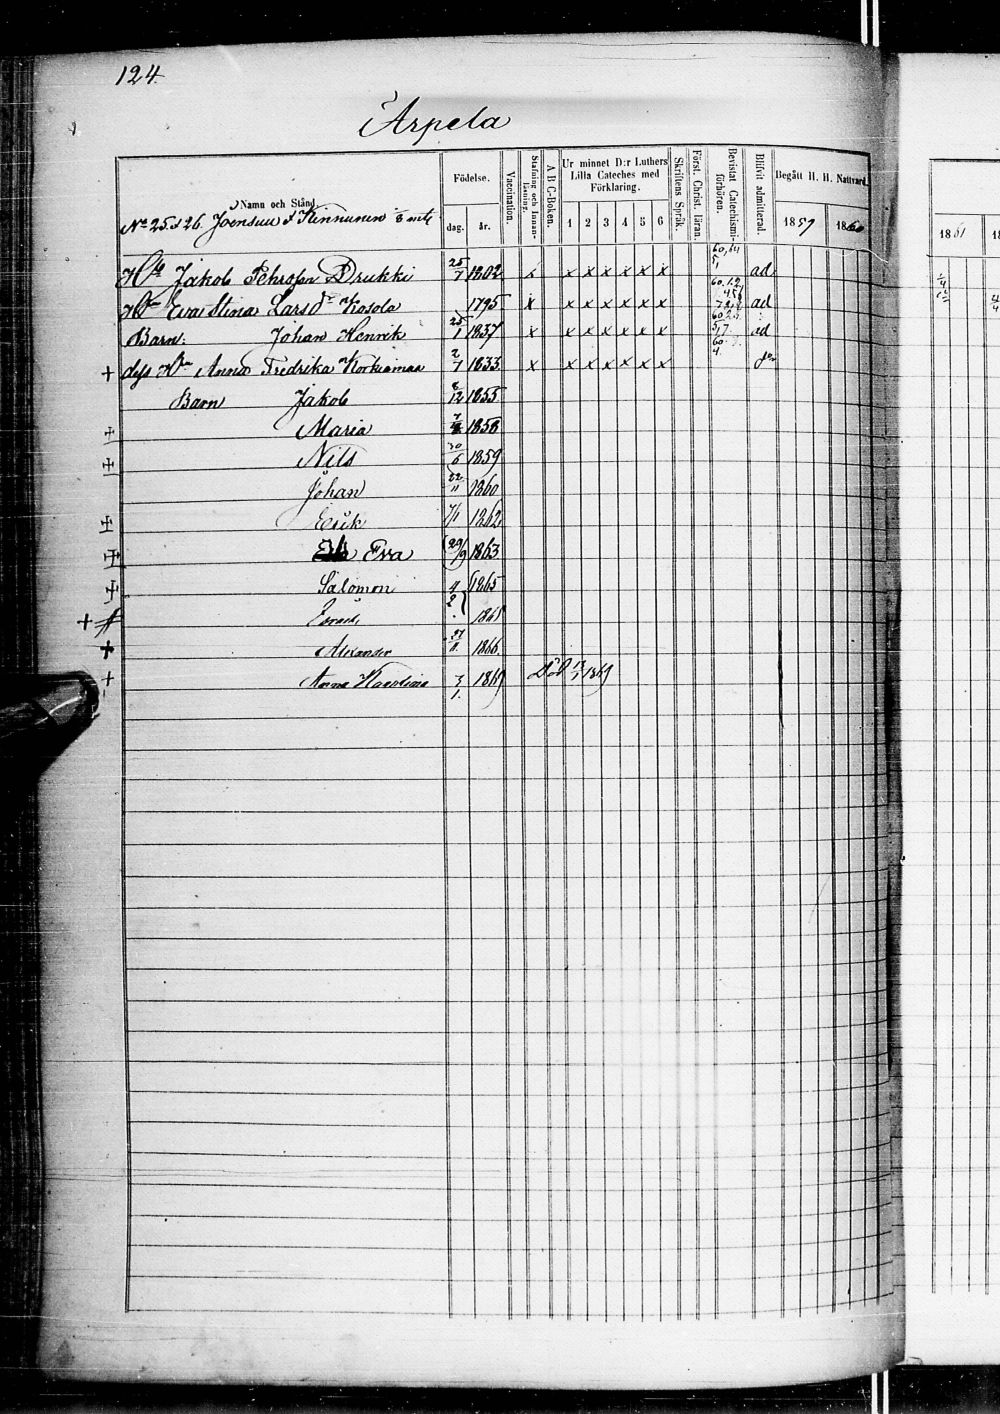 124.
Arpela
Namn och Stånd.
Födelse.
dag. år.
Vaccination.
Stafning och Innanläsning.
A B C-Boken.
Ur minnet D:r Luthers Lilla Cateches med Förklaring.
1 2 3 4 5 6
Skriftens Språk.
Först. Christ. läran.
Bevistat Catechismi-förhören.
Blifvit admitterad.
Begått H. H. Nattvard.
1859 1860
1861
No 25 & 26. Joensuu & Kinnunen
Jakob Drukki 25/7 1802 x x x x x x x ad
Eva Stina Larsdr Kosola 1795 x x x x x x x ad
Barn: Johan Henrik 25/1 1837 x x x x x x x ad
+ dess Anna Fredrika Korkiamaa 2/7 1833 x x x x x x x
Barn Jakob 8/12 1855
Maria 1858
Nils 30/6 1859
Johan 22/11 1860
Erik 7/1 1862
Eva 29/9 1863
Salomon 4/2 1865
1865
+ Alexander 1866
+ Anna Karolina 3/1. 1869 Död 13/1 1869